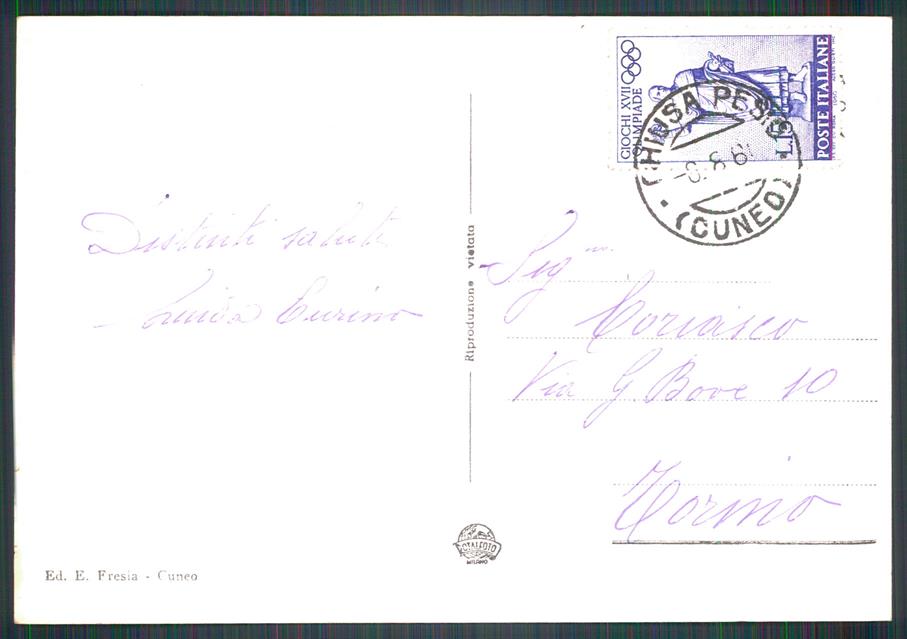 Distinti saluti
Luisa Curino
Ed. E. Fresia - Cuneo
Riproduzione vietata
ROTALFOTO
MILANO
GIOCHI XVII
OLIMPIADE
L.15
POSTE ITALIANE
CHIUSA PESIO
-8.8.6
(CUNEO)
Sig.na
Coriasco
Via G Bove 10
Torino